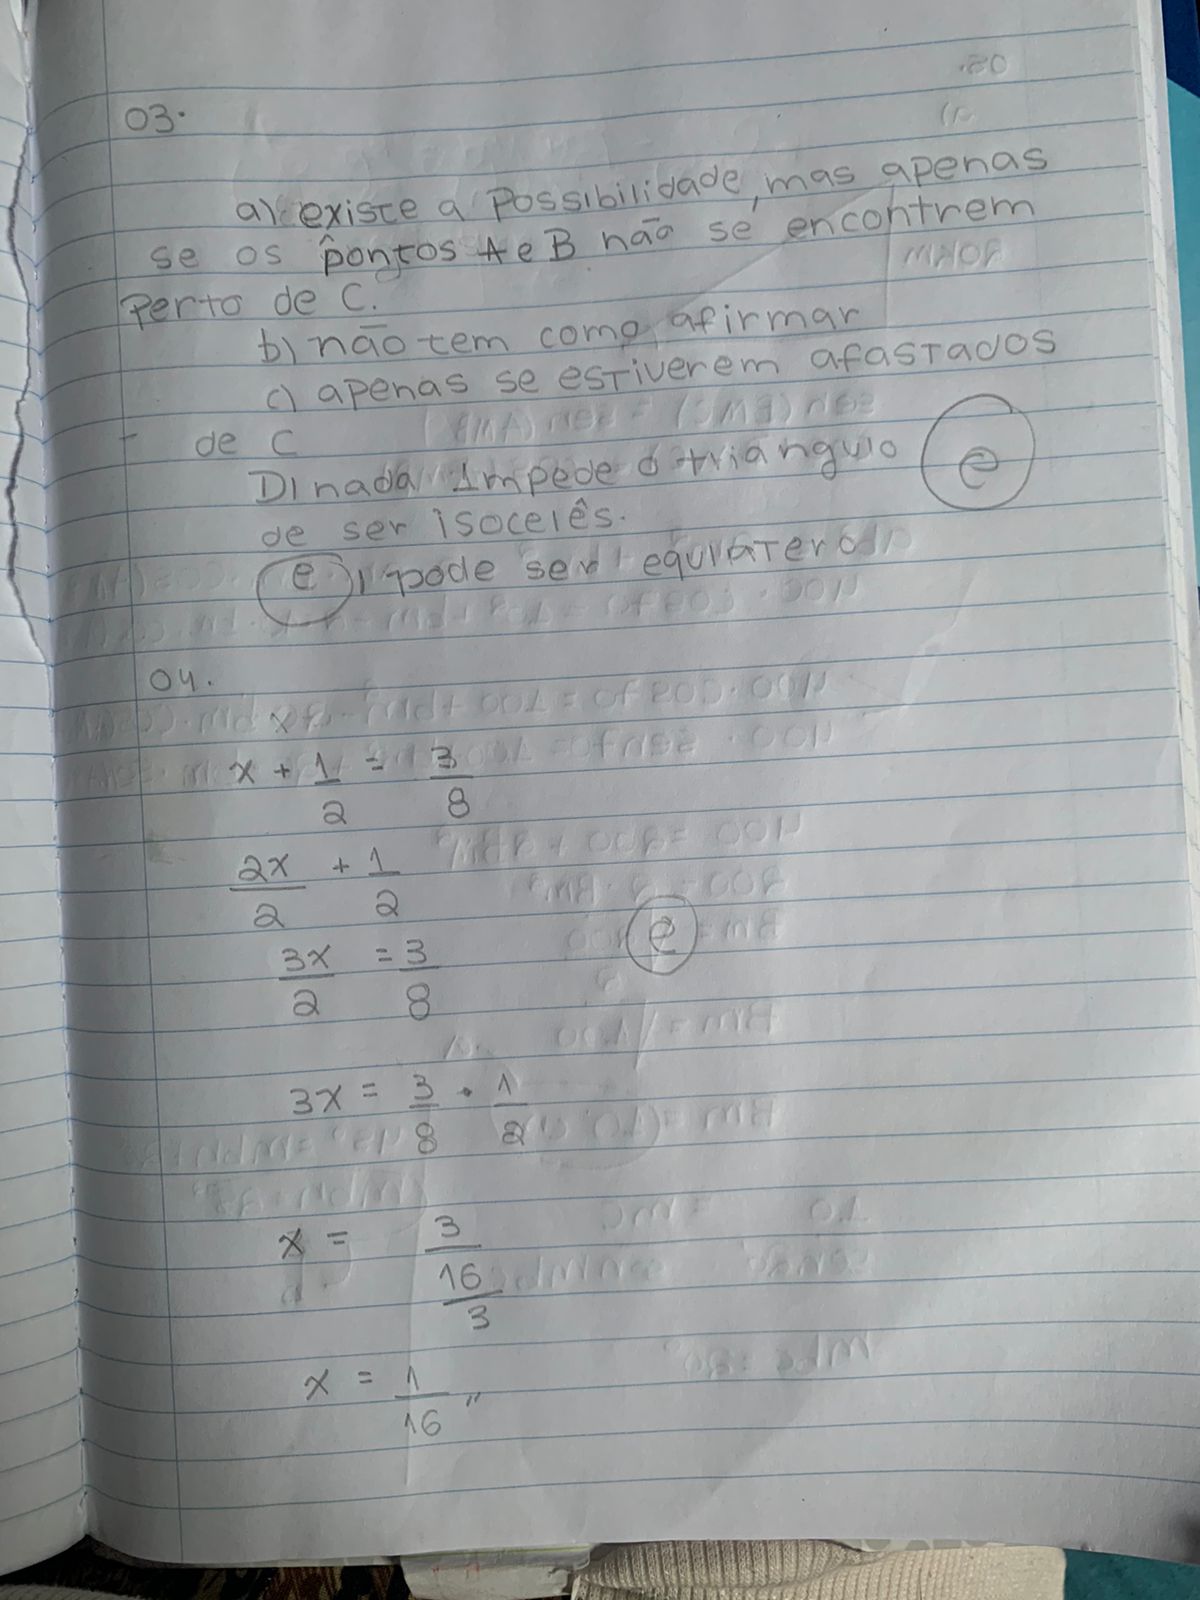 03.
a) existe a possibilidade, mas apenas
se os pontos A e B não se encontrem
perto de C.
b) não tem como afirmar
c) apenas se estiverem afastados
de C
D) nada impede o triangulo
e
de ser isocelês.
e) pode ser equilatero
04.
x + 1/2 = 3/8
2x/2 + 1/2
3x/2 = 3/8
e
3x = 3/8 . 1/2
x = 3/16/3
x = 1/16 "